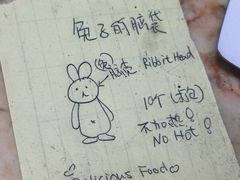 兔子的脑袋
兔脑壳 Ribbit Head
10个 (打包)
不加热!
No Hot!
Delicious Food